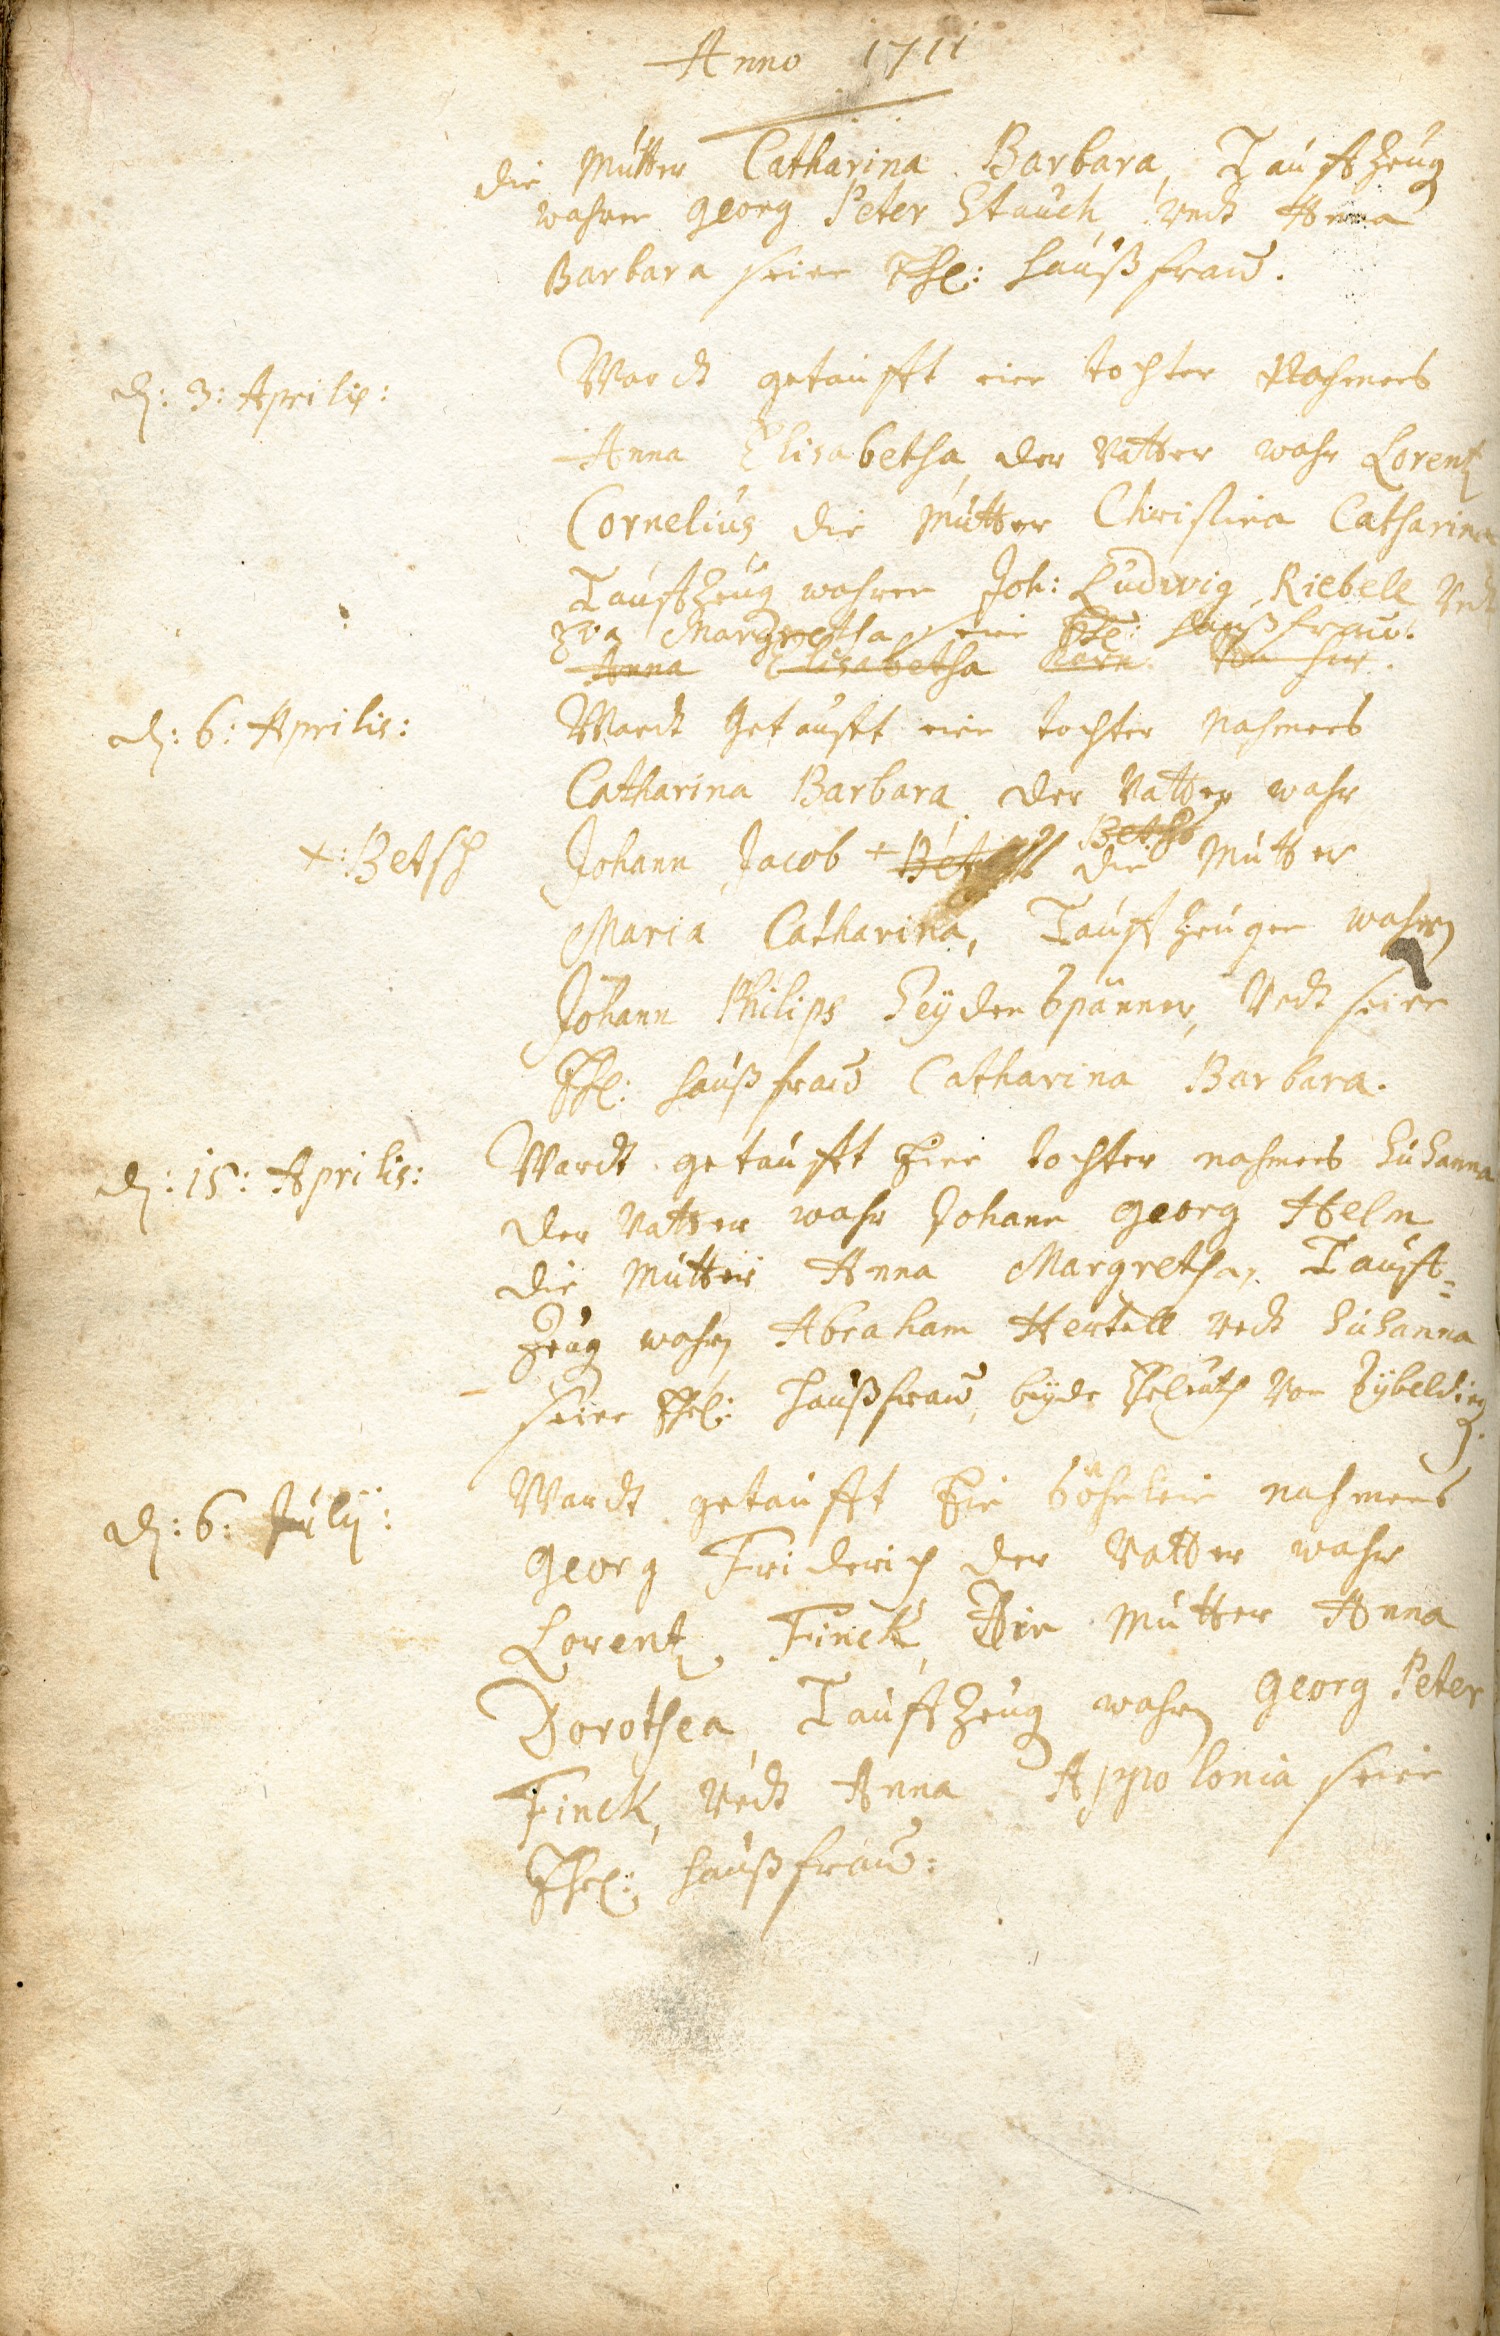 Anno 1711
die Mutter Catharina Barbara, Tauffzeug
wahren Georg Peter Stauch, undt Anna
Barbara seine Ehel: haußfraw.
d: 3: Aprilis:
Wardt getaufft eine tochter Nahmens
Anna Elisabetha, der Vatter wahr Lorentz
Cornelius die Mutter Christina Catharina
Tauffzeug wahren Joh: Ludwig Riebell undt
Eva Margretha seine Ehel: haußfraw.
Anna Elisabetha
d: 6: Aprilis:
Wardt getaufft eine tochter Nahmens
Catharina Barbara der Vatter wahr
+: Betsch
Johann Jacob + die Mutter
Maria Catharina, Tauffzeugen wahren
Johann Philips Seydenspänner, undt seine
Ehel: haußfraw Catharina Barbara.
d: 15: Aprilis:
Wardt getaufft Eine tochter nahmens Susanna
der Vatter wahr Johann Georg Helm
die Mutter Anna Margretha, Tauff-
Zeug wahren Abraham Hertell undt Susanna
seine Ehel: Haußfraw, beyde Eheleuth von
d: 6: Julij:
Wardt getaufft Ein Söhnlein nahmens
Georg Friderich der Vatter wahr
Lorentz Finck, Die Mutter Anna
Dorothea, Tauffzeug wahren Georg Peter
Finck, undt Anna Appolonia seine
Ehel: haußfraw: